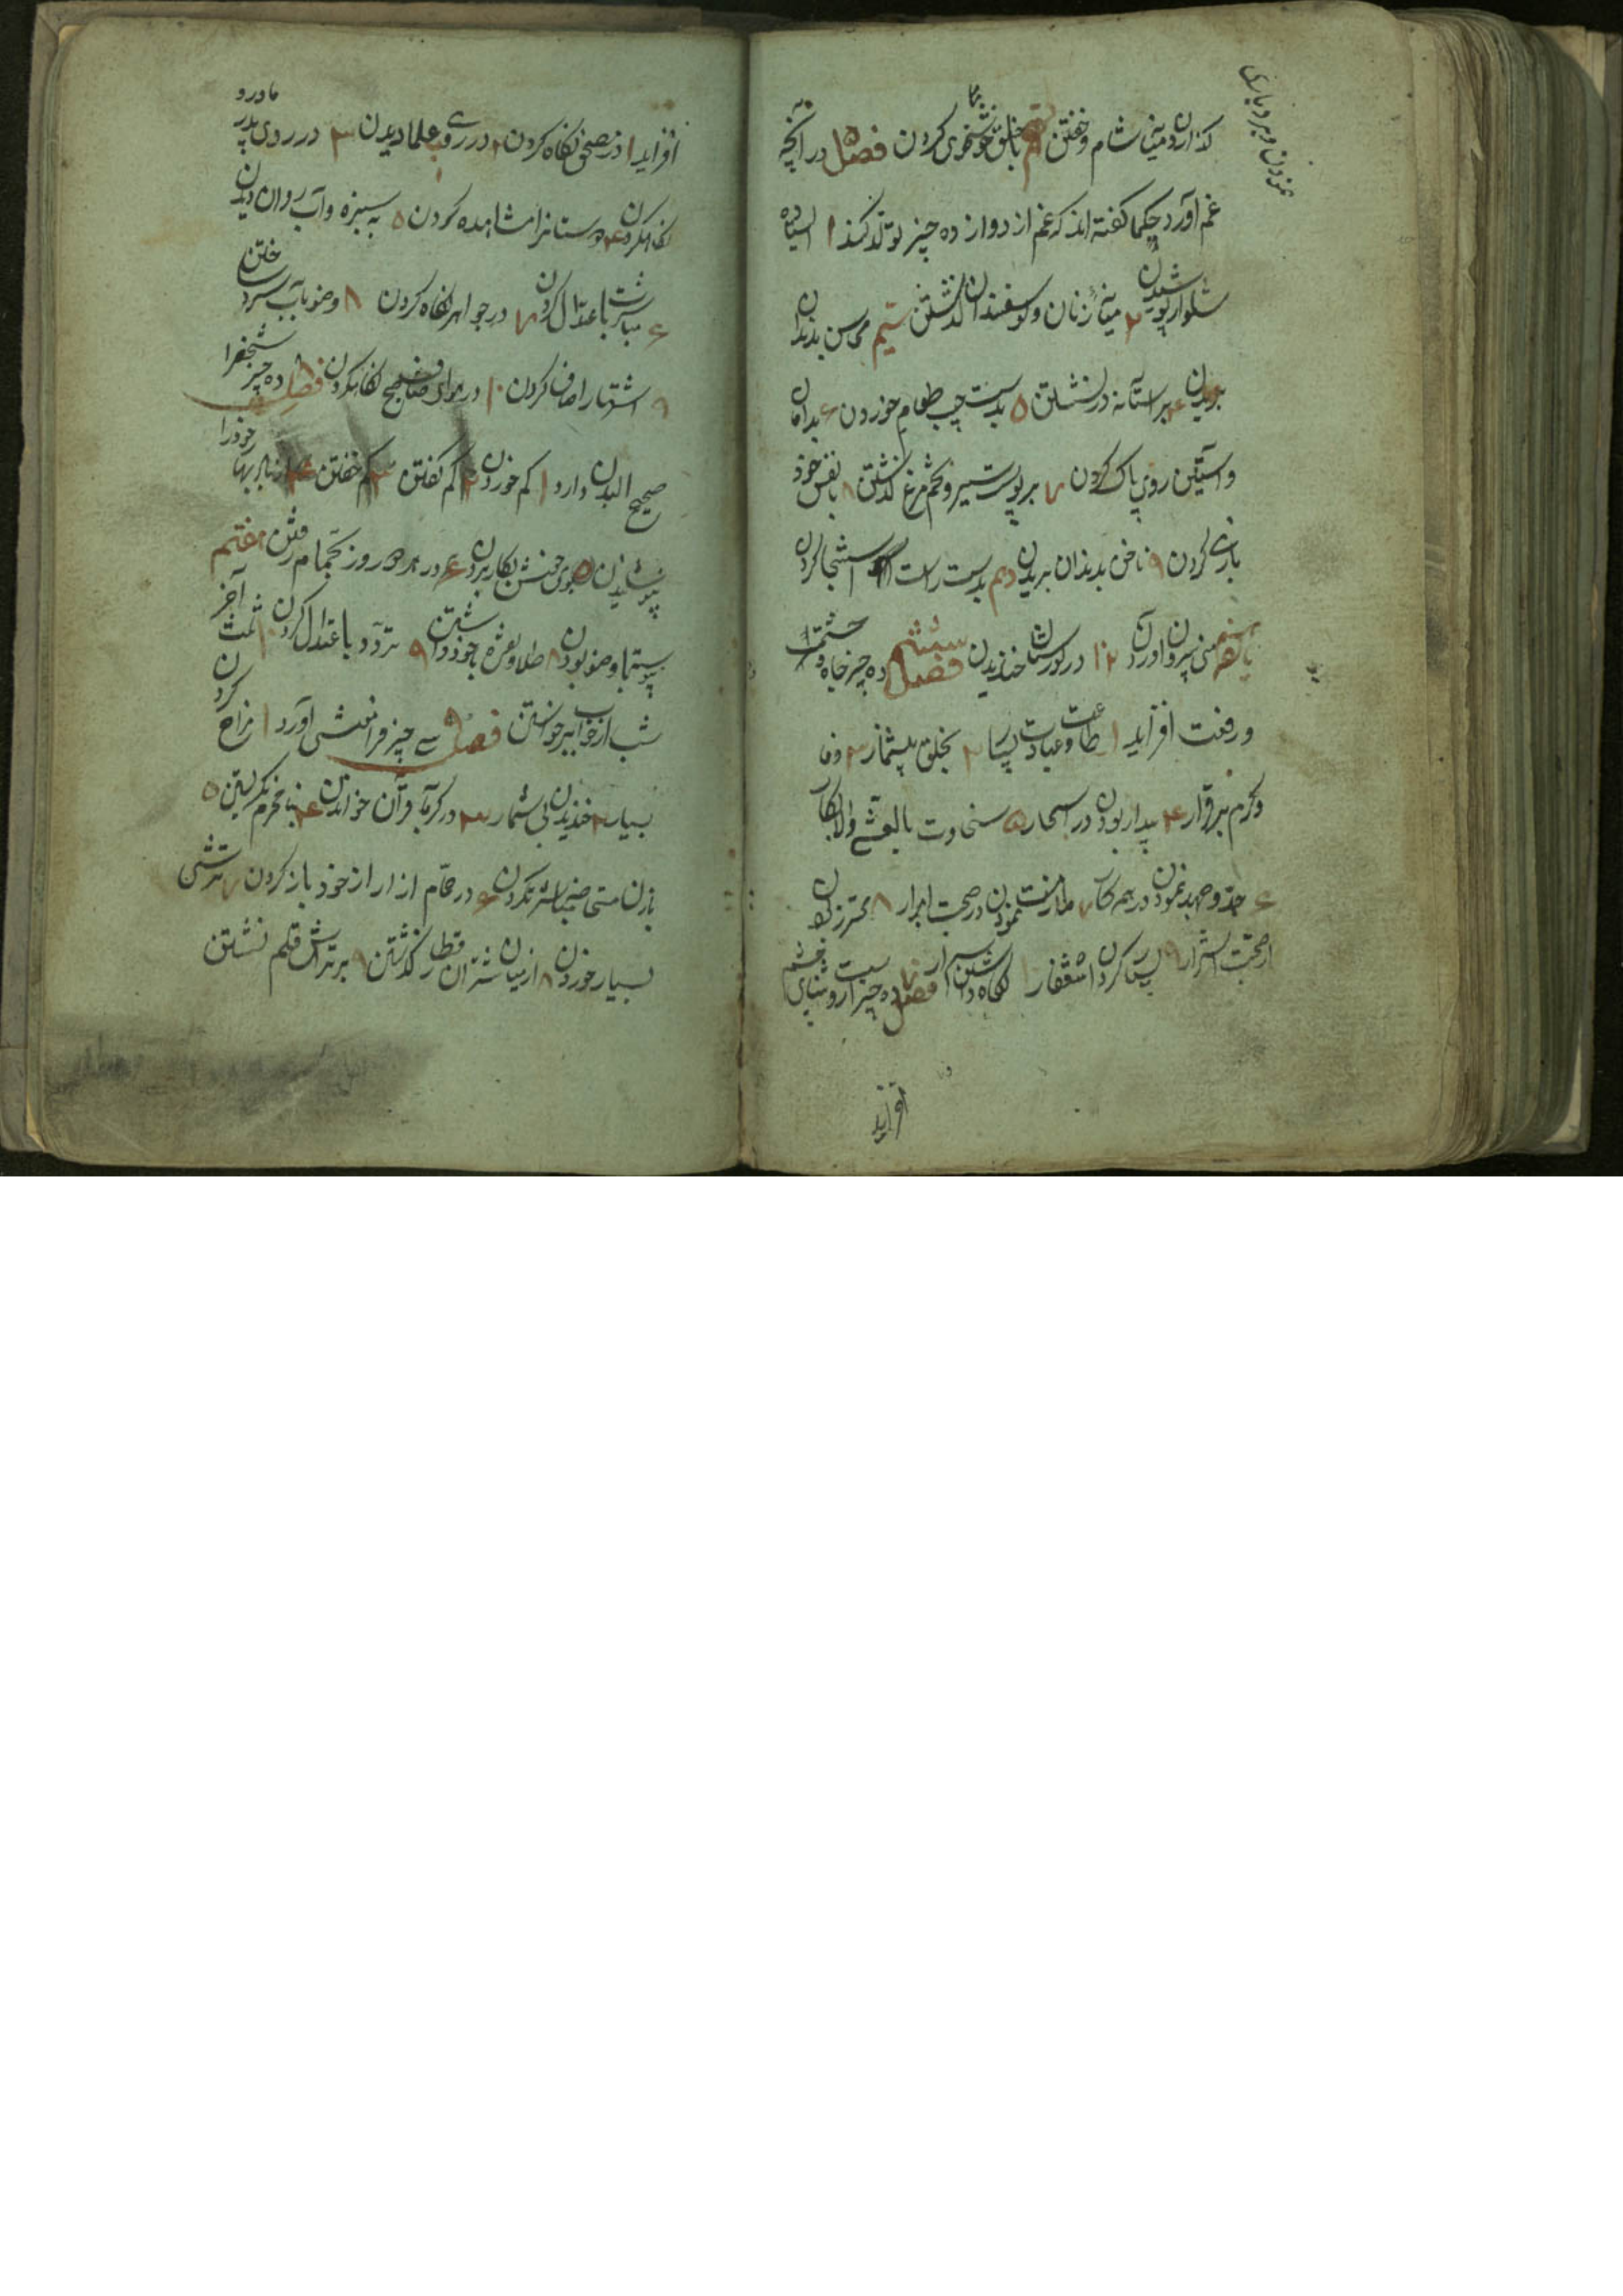 گذاردن میان شام و خفتن ۱۰ با خلق خوشخویی کردن فصل ۵ در آنچه
غم آورد حکما گفته اند که غم از دوازده چیز تولد کند ۱ ایستاده
شلوار پوشیدن ۲ میان زنان و گوسفندان گذشتن سیم محاسن بدندان
بریدن ۴ بر آستانه در نشستن ۵ بدست چپ طعام خوردن ۶ بدامان
و آستین روی پاک کردن ۷ بر پوست سیر و تخم مرغ گذشتن ۸ با نفس خود
بازی کردن ۹ ناخن بدندان بریدن دهم بدست راست استنجا کردن
یازدهم منی بیرون آوردن ۱۲ در گورستان خندیدن فصل ششم ده چیز جاه و حشمت
و رفعت افزاید ۱ طاعت و عبادت بسیار ۲ بخلق بیشمار ۳ وفا
و کرم برقرار ۴ بیدار بودن در اسحار ۵ سخاوت بالعشی والابکار
۶ جد و جهد نمودن در همه کار ۷ ملازمت نمودن در صحبت ابرار ۸ محترز بودن
از صحبت اشرار ۹ بسیار کردن استغفار ۱۰ نگاه داشتن اسرار فصل ۷ ده چیز است روشنایی چشم
افزاید
افزاید ۱ در مصحف نگاه کردن ۲ در روی علما دیدن ۳ در روی پدر و مادر
نگاه کردن ۴ دوستانرا مشاهده کردن ۵ به سبزه و آب روان دیدن
۶ مباشرت باعتدال کردن ۷ در جواهر نگاه کردن ۸ وضو بآب سرد ساختن
۹ اشتها را صاف کردن ۱۰ در هوای صاف صبح نگاه کردن فصل ۸ ده چیز شخص را
صحیح البدن دارد ۱ کم خوردن ۲ کم گفتن ۳ کم خفتن ۴ خود را
پوشیدن ۵ بوی خوش بکار بردن ۶ در هر دو روز بحمام رفتن هفتم
پیوسته با وضو بودن ۸ طلا و نقره با خود داشتن ۹ تردد باعتدال کردن ۱۰ ثلث آخر
شب از خواب برخواستن فصل ۹ سی چیز فراموشی آورد ۱ مزاح کردن
بسیار ۲ خندیدن بی شمار ۳ در گریه قرآن خواندن ۴ بنامحرم نگریستن ۵
با زن مباشرت کردن ۶ در حمام ازار از خود باز کردن ۷ ترشی
بسیار خوردن ۸ از میان قطار شتران گذشتن ۹ بر تراش قلم نشستن